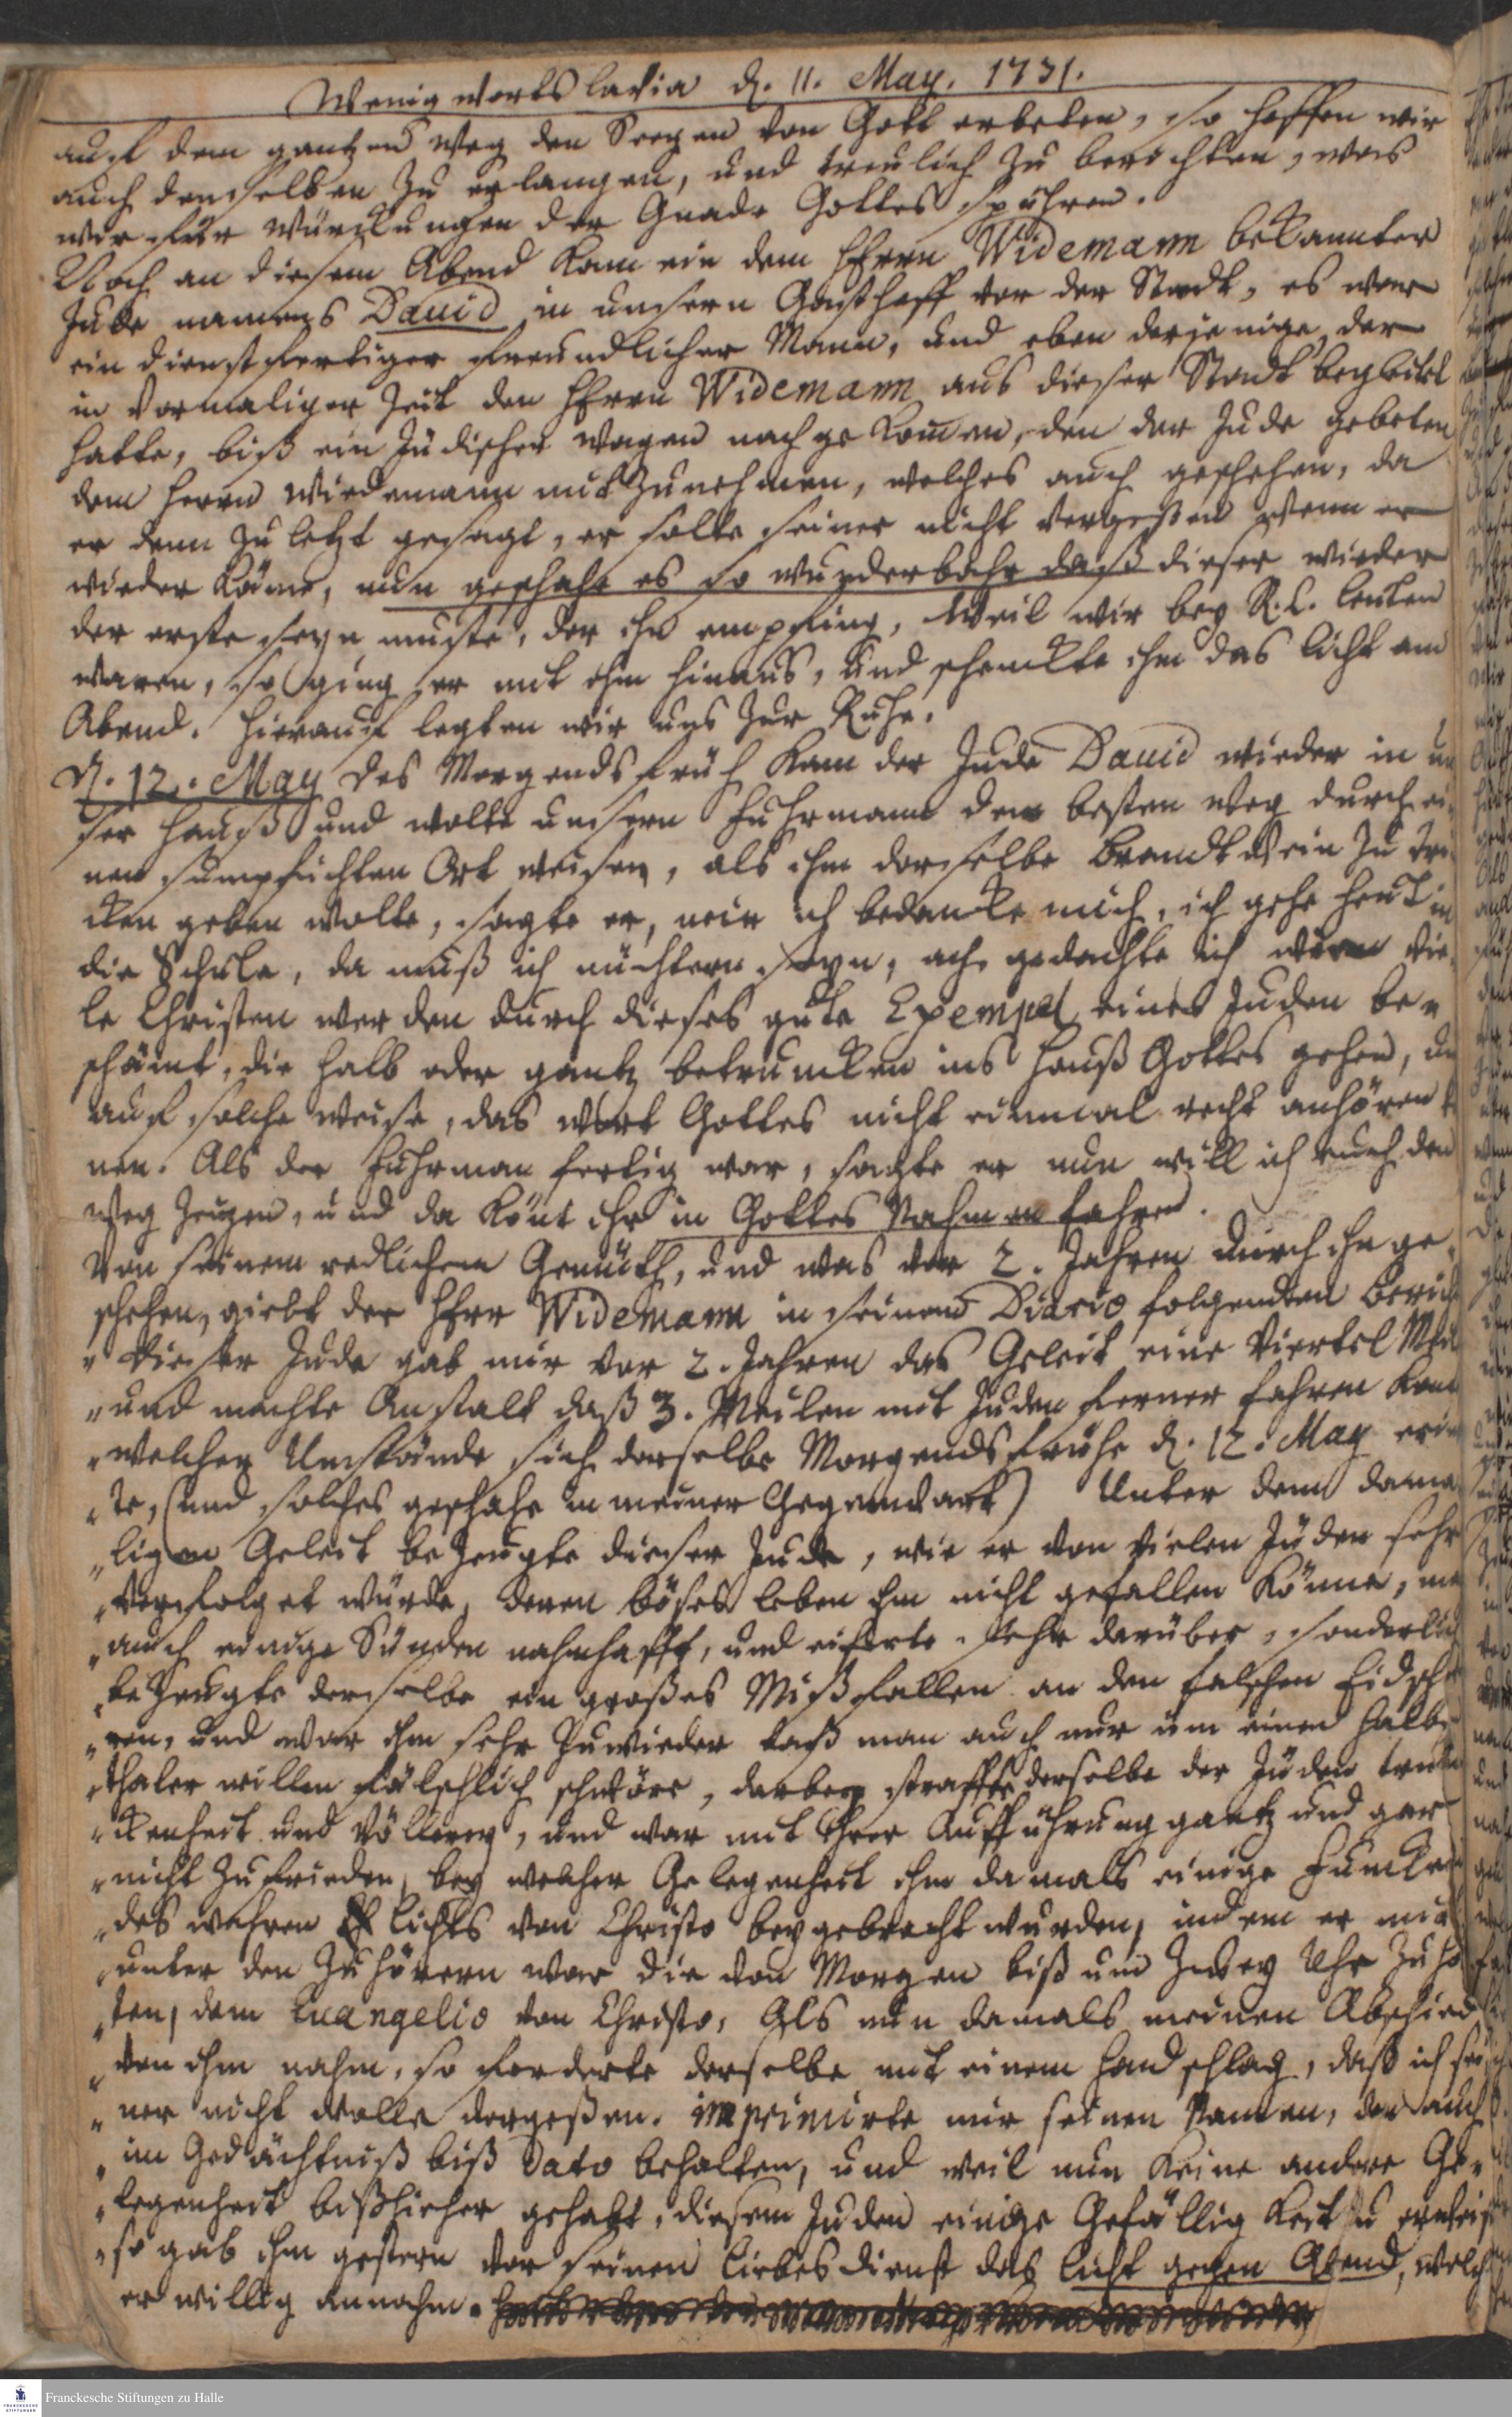 Wenigworts lavia d. 11. May. 1731.
auf dem gantzen Weg den Seegen von Gott erbeten, so hoffen wir
auch denselben zu erlangen, und treulich zu berichten, was
wir für würckungen der Gnade Gottes spühren.
Noch an diesem Abend kam ein dem Herrn Widemann bekannter
Jude namens David in unsern Gasthoff vor der Stadt, es war
ein dienstfertiger freundlicher Mann, und eben derjenige, der
in vormaliger Zeit den Herrn Widemann aus dieser Stadt begleitet
hatte, biß ein Jüdischer Wagen nachgekomen, den der Jude gebeten
dem Herrn Wiedemann mitzunehmen, welches auch geschehen, da
er denn zu letzt gesagt, er solte seiner nicht vergeßen wenn er
wieder käme, nun geschahe es so wunderbahr daß dieser wieder
der erste seyn muste, der ihn empfing, Weil wir bey R. C. leuten
waren, so ging er mit ihm hinaus, und schenckte ihm das licht am
Abend. Hierauf legten wir uns zur Ruhe.
d. 12. May des Morgends früh kam der Jude David wieder in un
ser Hauß und wolte unsern Fuhrmann den besten Weg durch ei
nen sumpfichten Ort weisen, als ihm derselbe Brandtwein zu trin
cken geben wolte, sagte er, nein ich bedancke mich, ich gehe heut in
die Schule, da muß ich nüchtern seyn, ach gedachte ich wie vie
le Christen werden durch dieses gute Exempel eines Juden be
schämt, die halb oder gantz betruncken ins Hauß Gottes gehen, un
auf solche weise, das wort Gottes nicht einmal recht anhören k
nen. Als der Fuhrman fertig war, sagte er nun will ich euch den
Weg zeigen, und da könt ihr in Gottes Nahmen fahren.
Von seinem redlichen Gemüth, und was vor 2. Jahren durch ihn ge
schehen, giebt der Herr Widemann in seinem Diario folgendten Berich
" Dieser Jude gab mir vor 2. Jahren das Geleit eine Viertel Meil
" und machte Anstalt daß 3. Meilen mit Juden ferner fahren kont
" welcher Umstände sich derselbe Morgends frühe d. 12. May erin
" te, (und solches geschahe in meiner Gegenwart) Unter dem dama
" ligen Geleit bezeugte dieser Jude, wie er von vielen Jüden sehr
" verfolget würde, deren böses leben ihm nicht gefallen könne, 
" auch einige Sünden nahmhafft, und eiferte sehr darüber, sonderlich
" bezeugte derselbe ein großes Mißfallen an den falschen Eidsch
" ren, und war ihm sehr zuwieder daß man auch nur um einen halb
" thaler willen fälschlich schwöre, darbey straffte derselbe der Jüden trun
" ckenheit und Völlerey, und war mit ihrer Aufführung gantz und gar
" nicht zufrieden, bey welcher Gelegenheit ihm damals einige Funcken
" des wahren lichts von Christo beygebracht wurden, indem er mit
" unter den Zuhörern war die von Morgen biß um Zwey Uhr zuhö
" ten, dem Evangelio von Christo, Als nun damals meinen Abschied
" von ihm nahm, so forderte derselbe mit einem Handschlag, daß ich sei
" ner nicht wolle vergeßen. imprimirte mir seinen Namen, der auch
" im Gedächtniß biß dato behalten, und weil nun keine andere Ge
" legenheit bißhieher gehabt, diesem Juden einige Gefälligkeit zu erweis
" so gab ihm gestern vor seinen liebesdienst das licht gegen Abend, welch
er willig annahm.
Franckesche Stiftungen zu Halle